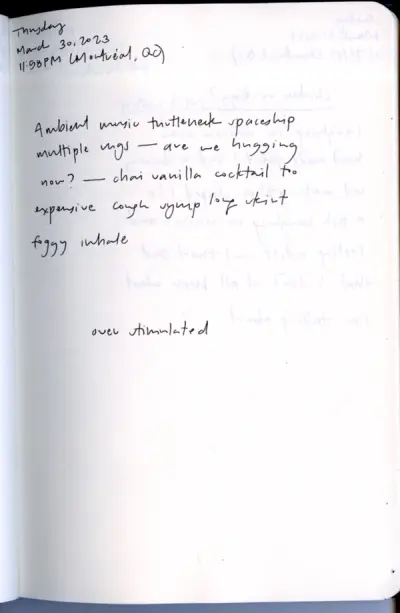 Thursday
March 30, 2023
11:58PM (Montréal, QC)
Ambient music turtleneck spaceship
multiple rugs — are we hugging
now? — chai vanilla cocktail too
expensive cough syrup long skirt
foggy inhale
over stimulated